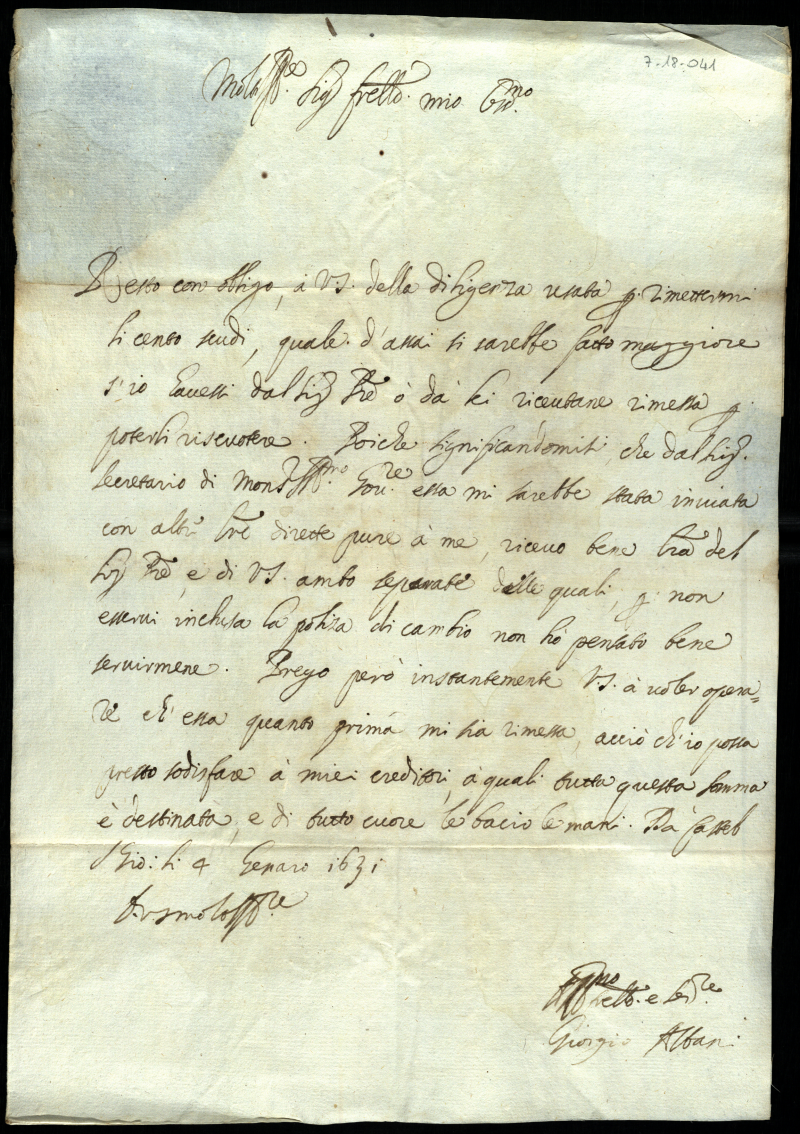 7-18-041
Molto Ill.re Sig.r fratello mio Oss.mo
Resto con obligo, à V.S. della diligenza usata p rimettermi
li cento scudi, quale d'assai si sarebbe fatto maggiore
s'io havessi dal Sig.r Pre ò da lei ricevutane rimessa p
poterli riscuotere. Poiche significandomisi, che dal Sig.r
secretario di Mons.r Ill.mo Gov.re essa mi sarebbe stata inviata
con altre lre dirette pure à me, ricevo bene lra del
Sig.r Pre, e di V.S. ambo separate delle quali, p non
esservi inclusa la poliza di cambio non hò pensato bene
servirmene. Prego però instantemente V.S. à voler opera=
re ch'essa quanto prima mi sia rimessa, acciò ch'io possa
presto sodisfare à miei creditori, à quali tutta questa somma
è destinata, e di tutto cuore le bacio le mani. Da Castel
S Gio: li 4 Genaro 1631
D. V S molto Ill.re
Aff.mo fratello e Ser.re
Giorgio Albani